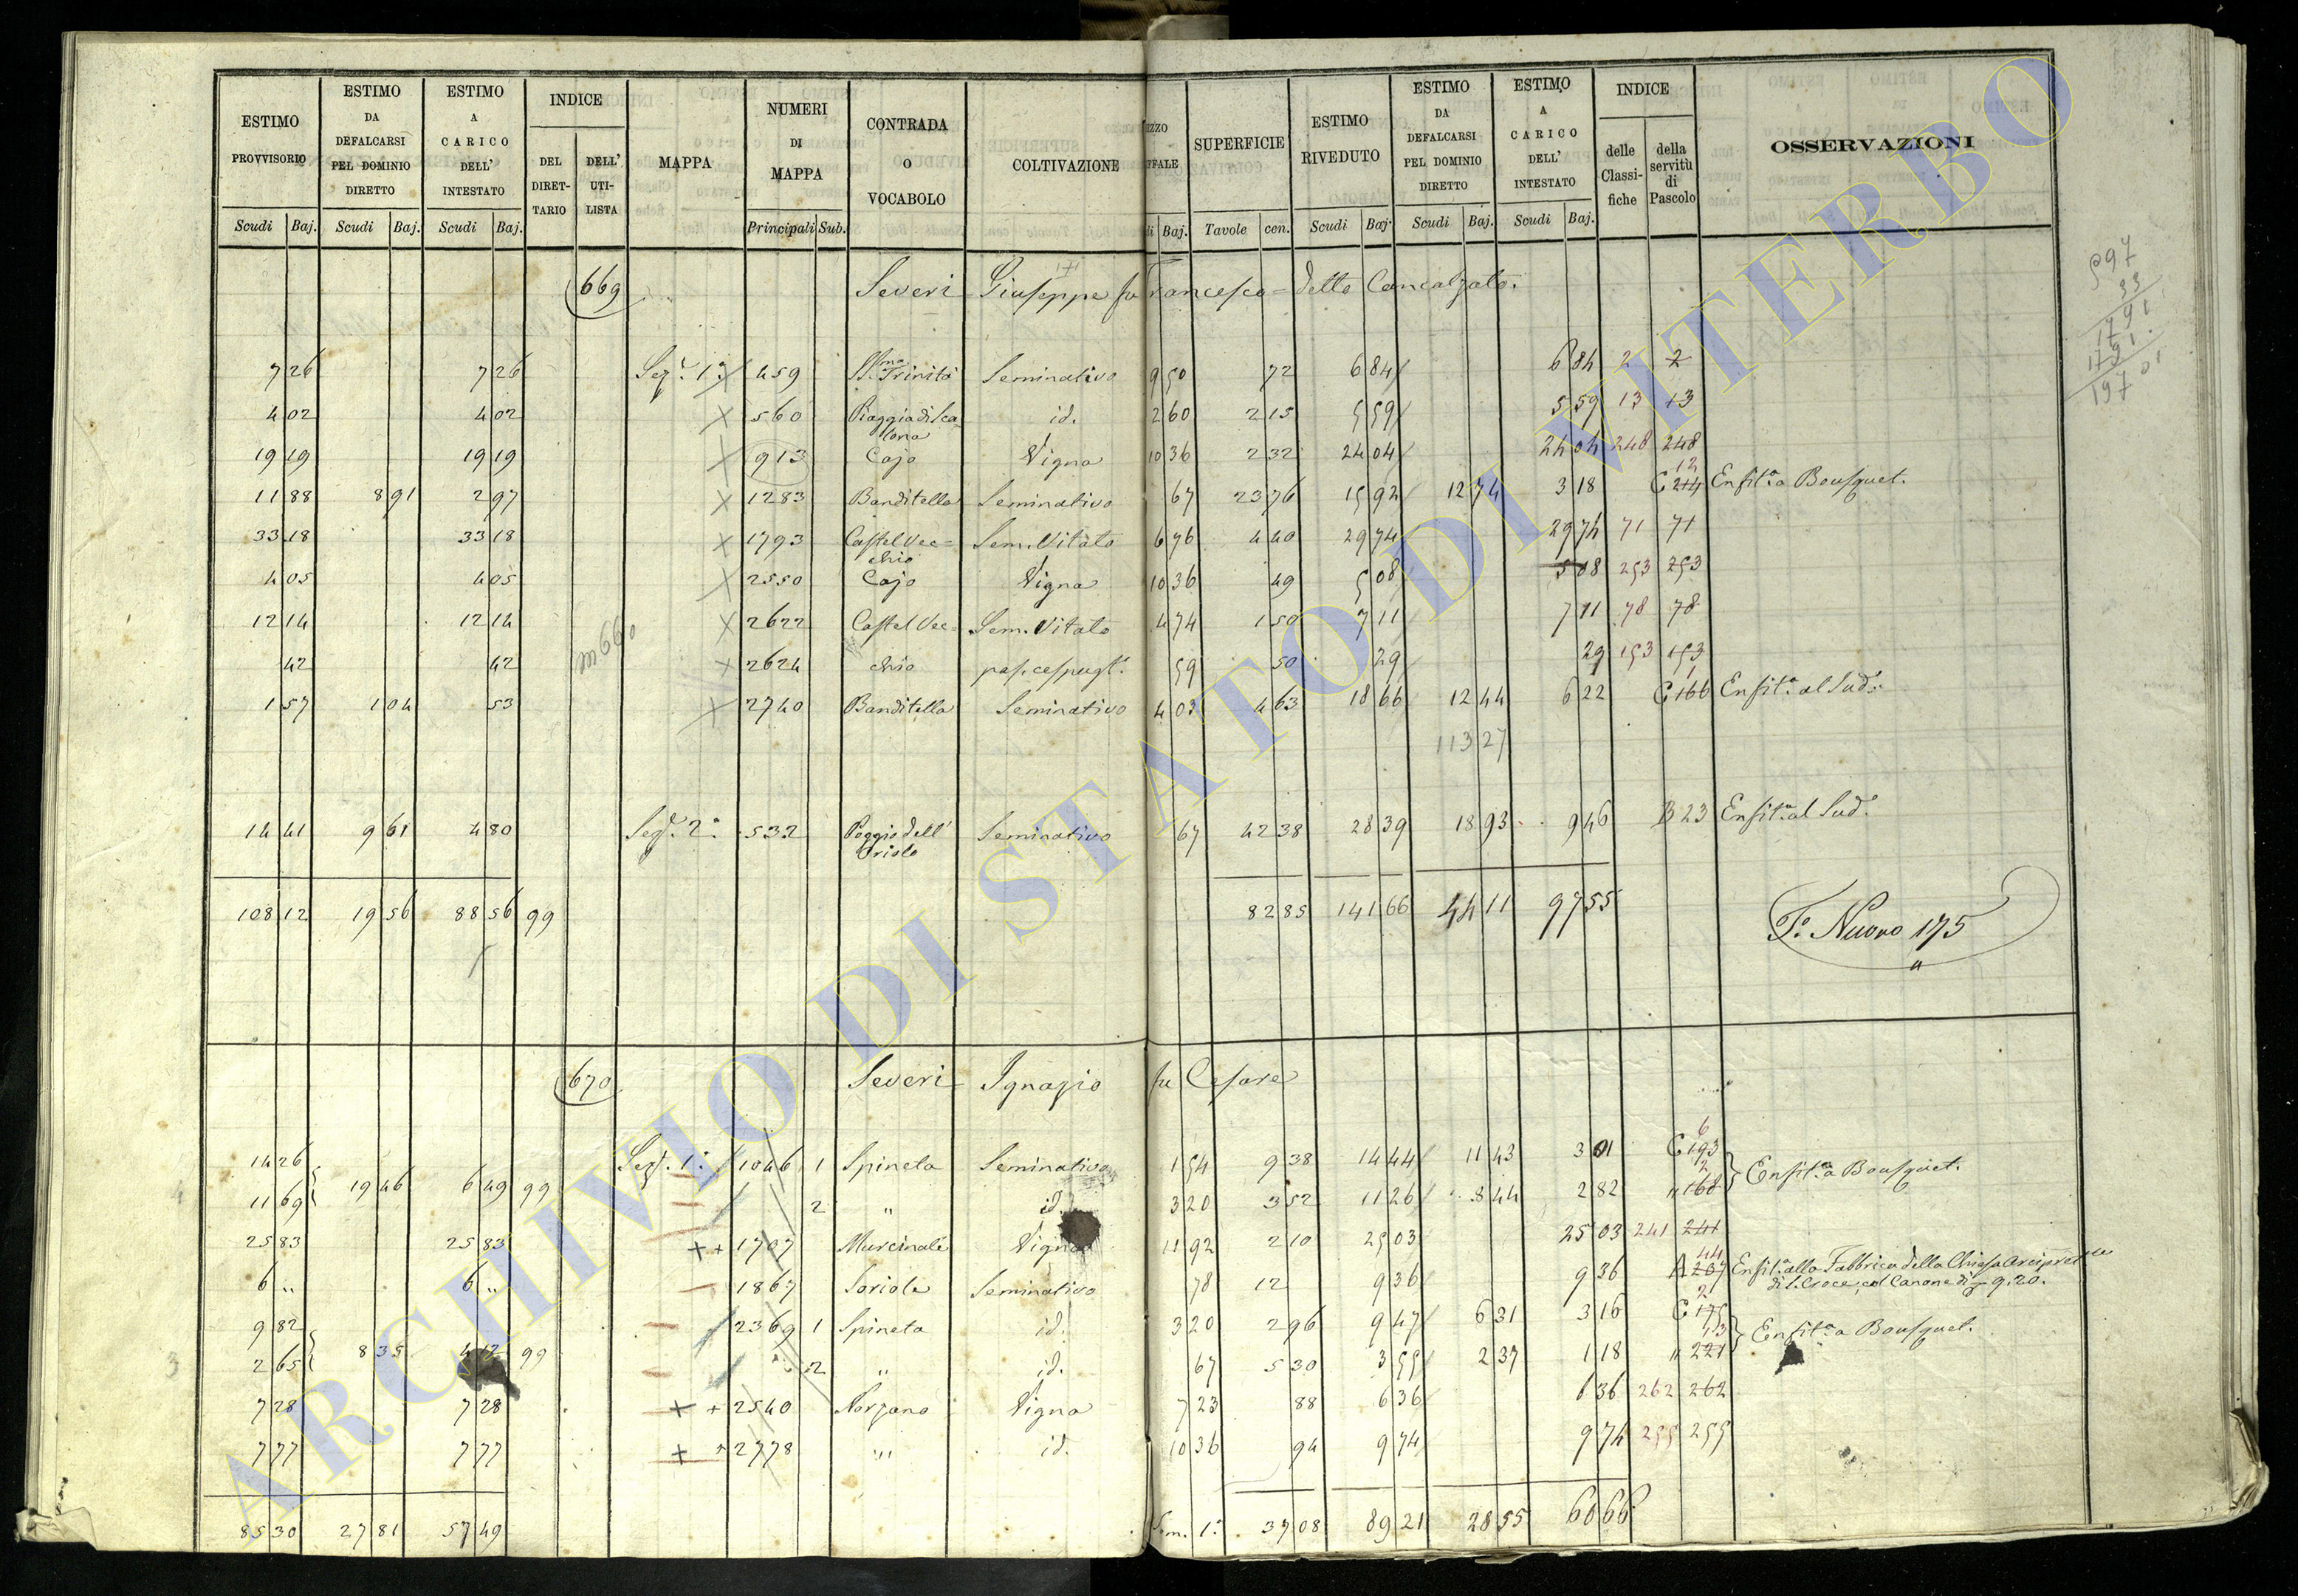 ESTIMO PROVVISORIO | ESTIMO DA DEFALCARSI PEL DOMINIO DIRETTO | ESTIMO A CARICO DELL' INTESTATO | INDICE | MAPPA | NUMERI DI MAPPA | CONTRADA O VOCABOLO | COLTIVAZIONE | SUPERFICIE | ESTIMO RIVEDUTO | ESTIMO DA DEFALCARSI PEL DOMINIO DIRETTO | ESTIMO A CARICO DELL' INTESTATO | INDICE | OSSERVAZIONI
DEL DIRET-TARIO | DELL' UTI-LISTA | delle Classi-fiche | della servitù di Pascolo
Scudi Baj. | Scudi Baj. | Scudi Baj. | Principali Sub. | Baj. | Tavole cen. | Scudi Baj. | Scudi Baj. | Scudi Baj.
669 Severi Giuseppe fu Francesco = detto
7 26 | 7 26 | Sez. 1a | 459 | SS.ma Trinità | Seminativo | 9 50 | 72 | 6 84 | 6 84 | 2 | 2
4 02 | 4 02 | 560 | Piaggia di Sca- | id. | 2 60 | 2 15 | 5 59 | 5 59 | 13 | 13
19 19 | 19 19 | 913 | Cajo | Vigna | 10 36 | 2 32 | 24 04 | 24 04 | 248 | 248
12
11 88 | 8 91 | 2 97 | 1283 | Banditella | Seminativo | 67 | 23 76 | 15 92 | 12 74 | 3 18 | C 214 | Enfit.a a Bousquet.
33 18 | 33 18 | 1793 | Castel Vec= chio | Sem. Vitato | 6 76 | 4 40 | 29 74 | 29 74 | 71 | 71
4 05 | 4 05 | 2550 | Cajo | Vigna | 10 36 | 49 | 5 08 | 5 08 | 253 | 253
12 14 | 12 14 | 2622 | Castel Vec= | Sem. Vitato | 4 74 | 1 50 | 7 11 | 7 11 | 78 | 78
42 | 42 | 2624 | chio | pas. cespugl. | 59 | 50 | 29 | 29 | 153 | 153
1
1 57 | 1 04 | 53 | 2740 | Banditella | Seminativo | 4 03 | 4 63 | 18 66 | 12 44 | 6 22 | C 166 | Enfit.a al Sud.o
113 27
14 41 | 9 61 | 4 80 | Sez. 2a | 532 | Poggio dell' | Seminativo | 67 | 42 38 | 28 39 | 18 93 | 9 46 | B 23 | Enfit.a al Sud.o
108 12 | 19 56 | 88 56 | 99 | 82 85 | 141 66 | 44 11 | 97 55
F.o Nuovo 175
670 Severi Ignazio fu Cesare
6
14 26 | Sez. 1a | 1046 1 | Spineta | Seminativo | 1 54 | 9 38 | 14 44 | 11 43 | 3 01 | C 193
19 46 | 6 49 | 99 | Enfit.a a Bousquet.
2
11 69 | 2 | " | id. | 3 20 | 3 52 | 11 26 | 8 44 | 2 82 | " 168
25 83 | 25 83 | 1707 | Murcinale | Vigna | 11 92 | 2 10 | 25 03 | 25 03 | 241 | 241
44
6 " | 6 " | 1867 | Soriole | Seminativo | 78 | 12 | 9 36 | 9 36 | A 207 | Enfit.a alla Fabbrica della Chiesa
di S. Croce, col Canone di 9.20.
2
9 82 | 2369 1 | Spineta | id. | 3 20 | 2 96 | 9 47 | 6 31 | 3 16 | C 175
8 35 | 4 12 | 99 | Enfit.a a Bousquet.
13
2 65 | 2 | " | id. | 67 | 5 30 | 3 55 | 2 37 | 1 18 | " 221
7 28 | 7 28 | 2540 | Norzano | Vigna | 7 23 | 88 | 6 36 | 6 36 | 262 | 262
7 77 | 7 77 | 2778 | " | id. | 10 36 | 94 | 9 74 | 9 74 | 255 | 255
85 30 | 27 81 | 57 49 | Som. 1a | 37 08 | 89 21 | 28 55 | 60 66
597
33
1791
1791
197 01
ARCHIVIO DI STATO DI VITERBO